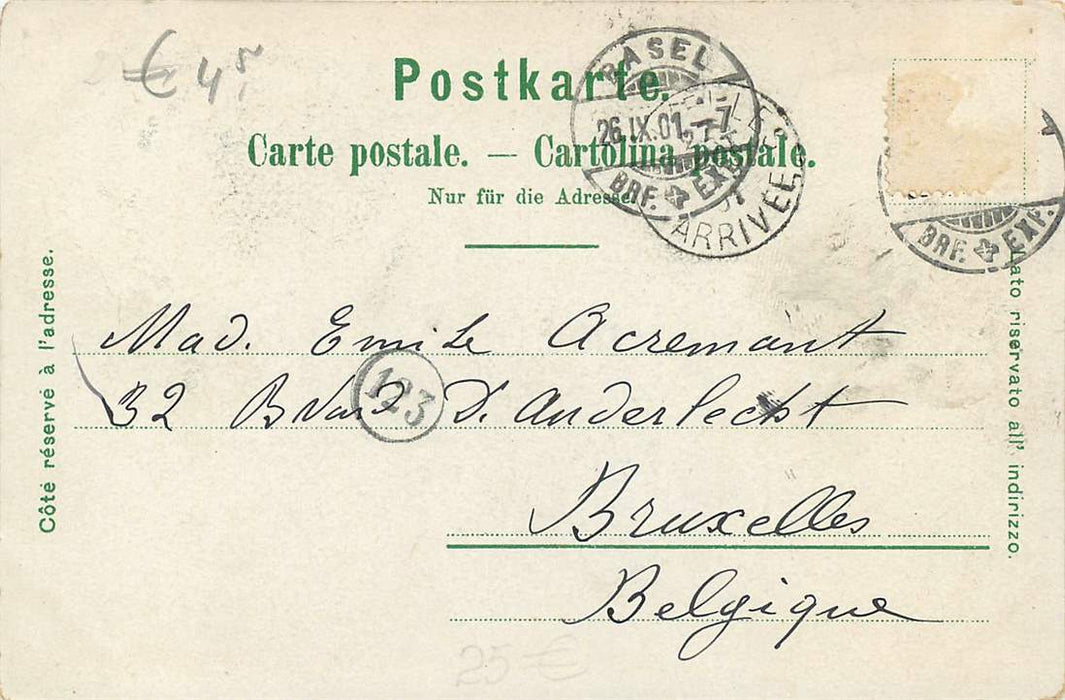 € 45
Postkarte.
Carte postale. — Cartolina postale.
Nur für die Adresse.
BASEL
26.IX.01.-7
BRF. EXP.
ARRIVÉE
BRF. EXP.
Côté réservé à l'adresse.
Lato riservato all' indirizzo.
Mad. Emile Acremant
32 Bvard D'Anderlecht
123
Bruxelles
Belgique
25 €